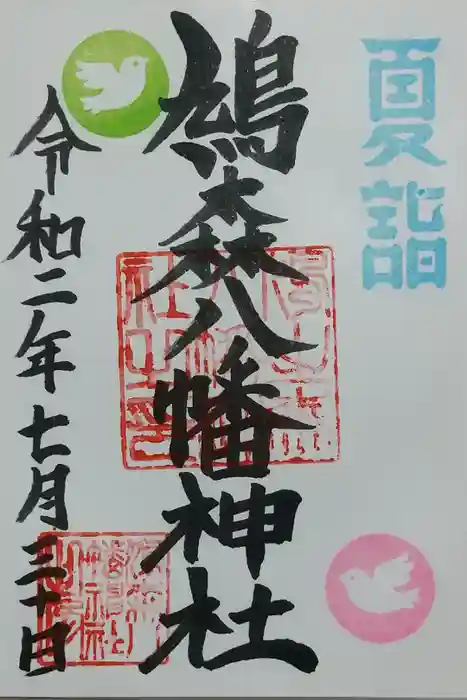 夏詣
鳩森八幡神社
令和二年七月三十日